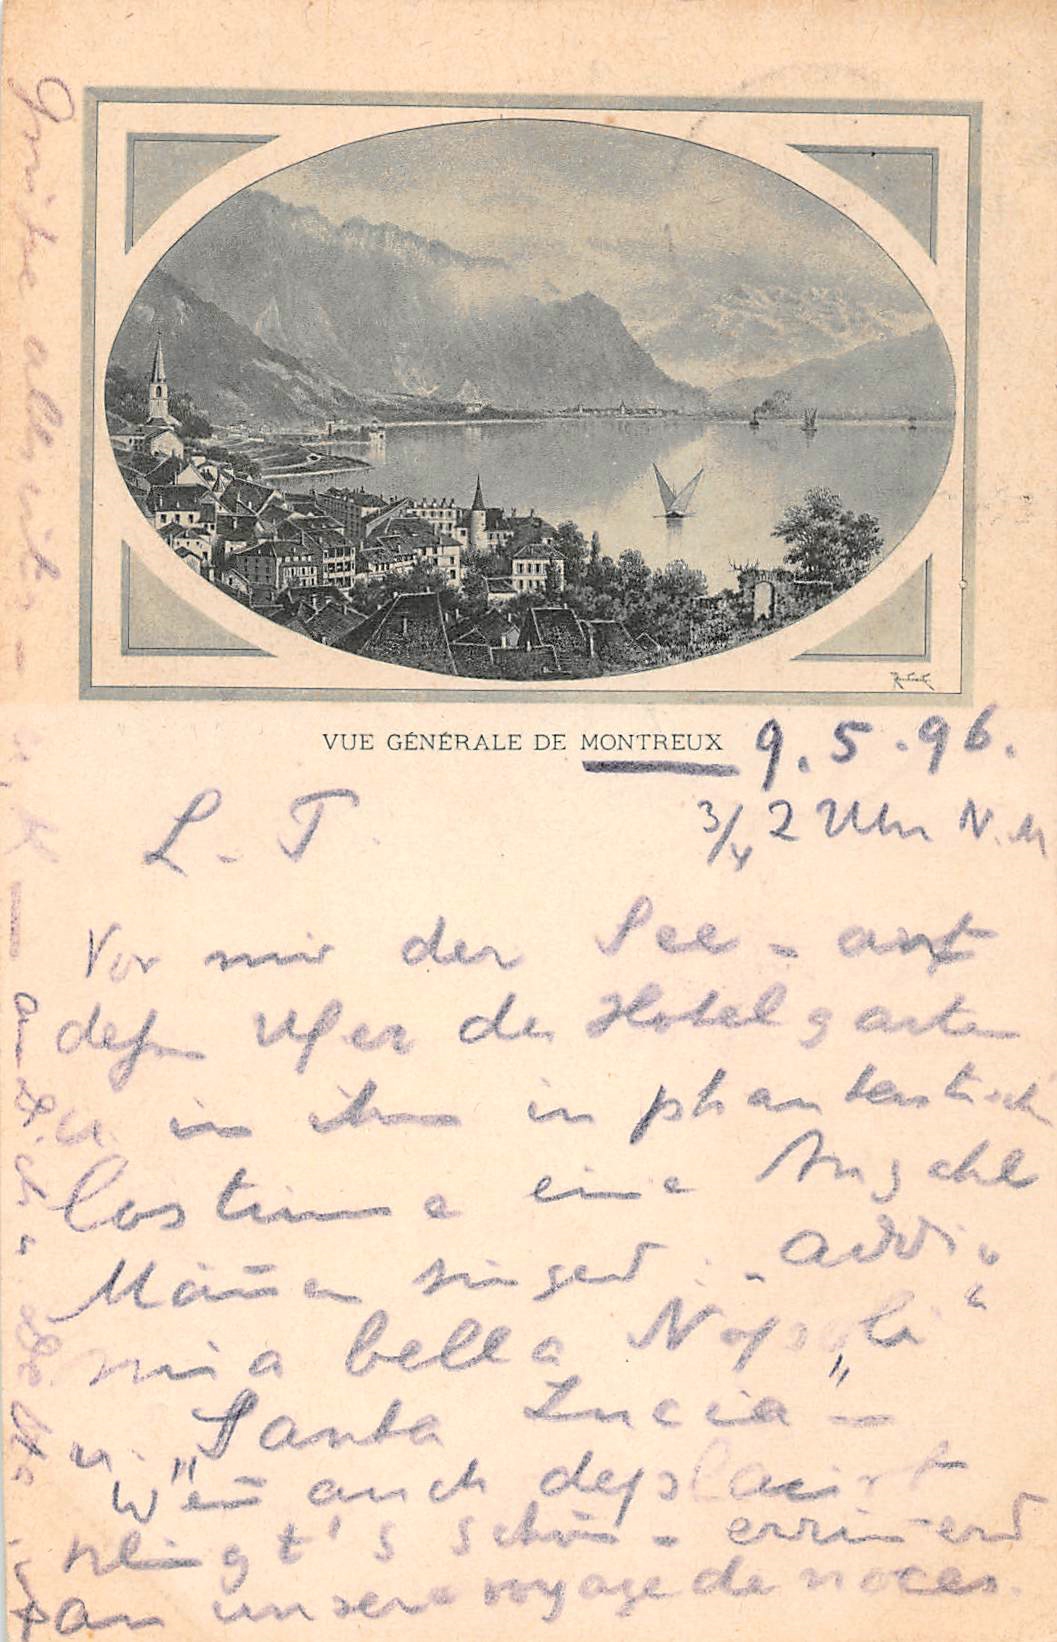 VUE GÉNÉRALE DE MONTREUX
9.5.96.
3/4 2 Uhr N.M
L. T.
Vor mir der See - auf
deßn Ufer der Hotelgarten
u. in ihm in phantastisch
Costüme eine Anzahl
Männer singend: „addio
mia bella Napoli“
u. „Santa Lucia“ -
Weñ auch deplacirt
klingt's schön - erinnernd
an unsere voyage de noces.
Grüße allerseits -